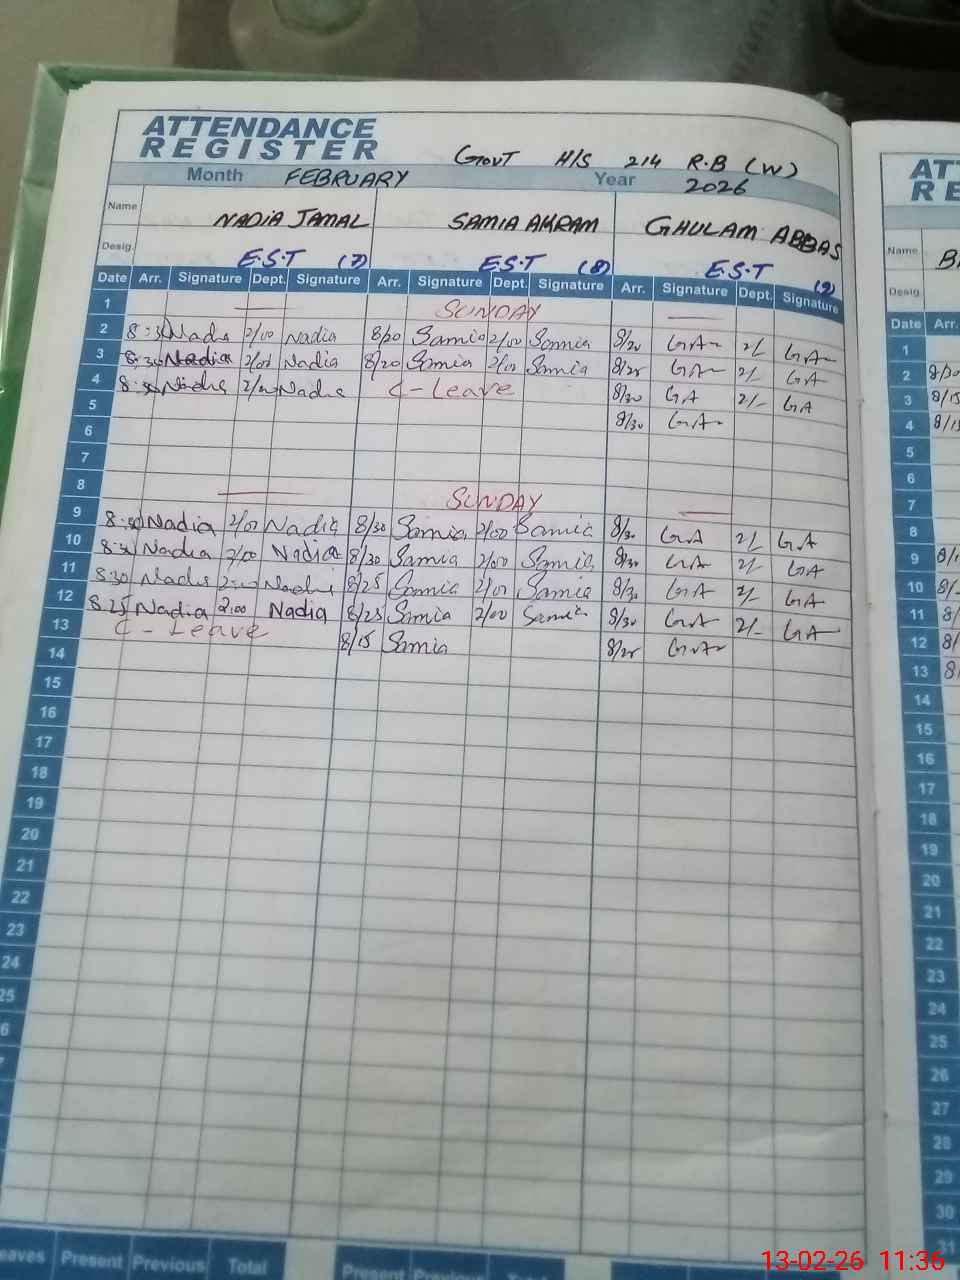 ATTENDANCE
REGISTER
GOVT H/S 214 R.B (W)
Month FEBRUARY Year 2026
Name NADIA JAMAL SAMIA AKRAM GHULAM ABBAS
Desig. E.S.T (7) E.S.T (8) E.S.T (9)
Date Arr. Signature Dept. Signature Arr. Signature Dept. Signature Arr. Signature Dept. Signature
1 SUNDAY
2 8:3 Nadia 2/00 Nadia 8/20 Samia 2/00 Samia 8/20 GA 2/ GA
3 8:30 Nadia 2/00 Nadia 8/20 Samia 2/00 Samia 8/25 GA 2/- GA
4 8:30 Nadia 2/00 Nadia C-Leave 8/30 GA 2/- GA
5 8/30 GA
6
7
8 SUNDAY
9 8:30 Nadia 2/00 Nadia 8/30 Samia 2/00 Samia 8/30 GA 2/ GA
10 8:30 Nadia 2/00 Nadia 8/30 Samia 2/00 Samia 8/30 GA 2/ GA
11 8:30 Nadia 2:00 Nadia 8/25 Samia 2/00 Samia 8/30 GA 2/ GA
12 8:25 Nadia 2:00 Nadia 8/25 Samia 2/00 Samia 8/30 GA 2/- GA
13 C-Leave 8/15 Samia 8/25 GA
14
15
16
17
18
19
20
21
22
23
24
25
6
eaves Present Previous Total Present Previous Total
AT
RE
Name B
Desig.
Date Arr.
1
2 8/30
3 8/15
4 8/15
5
6
7
8
9 8/
10 8/
11 8/
12 8/
13 8
14
15
16
17
18
19
20
21
22
23
24
25
26
27
28
29
30
31
13-02-26 11:36